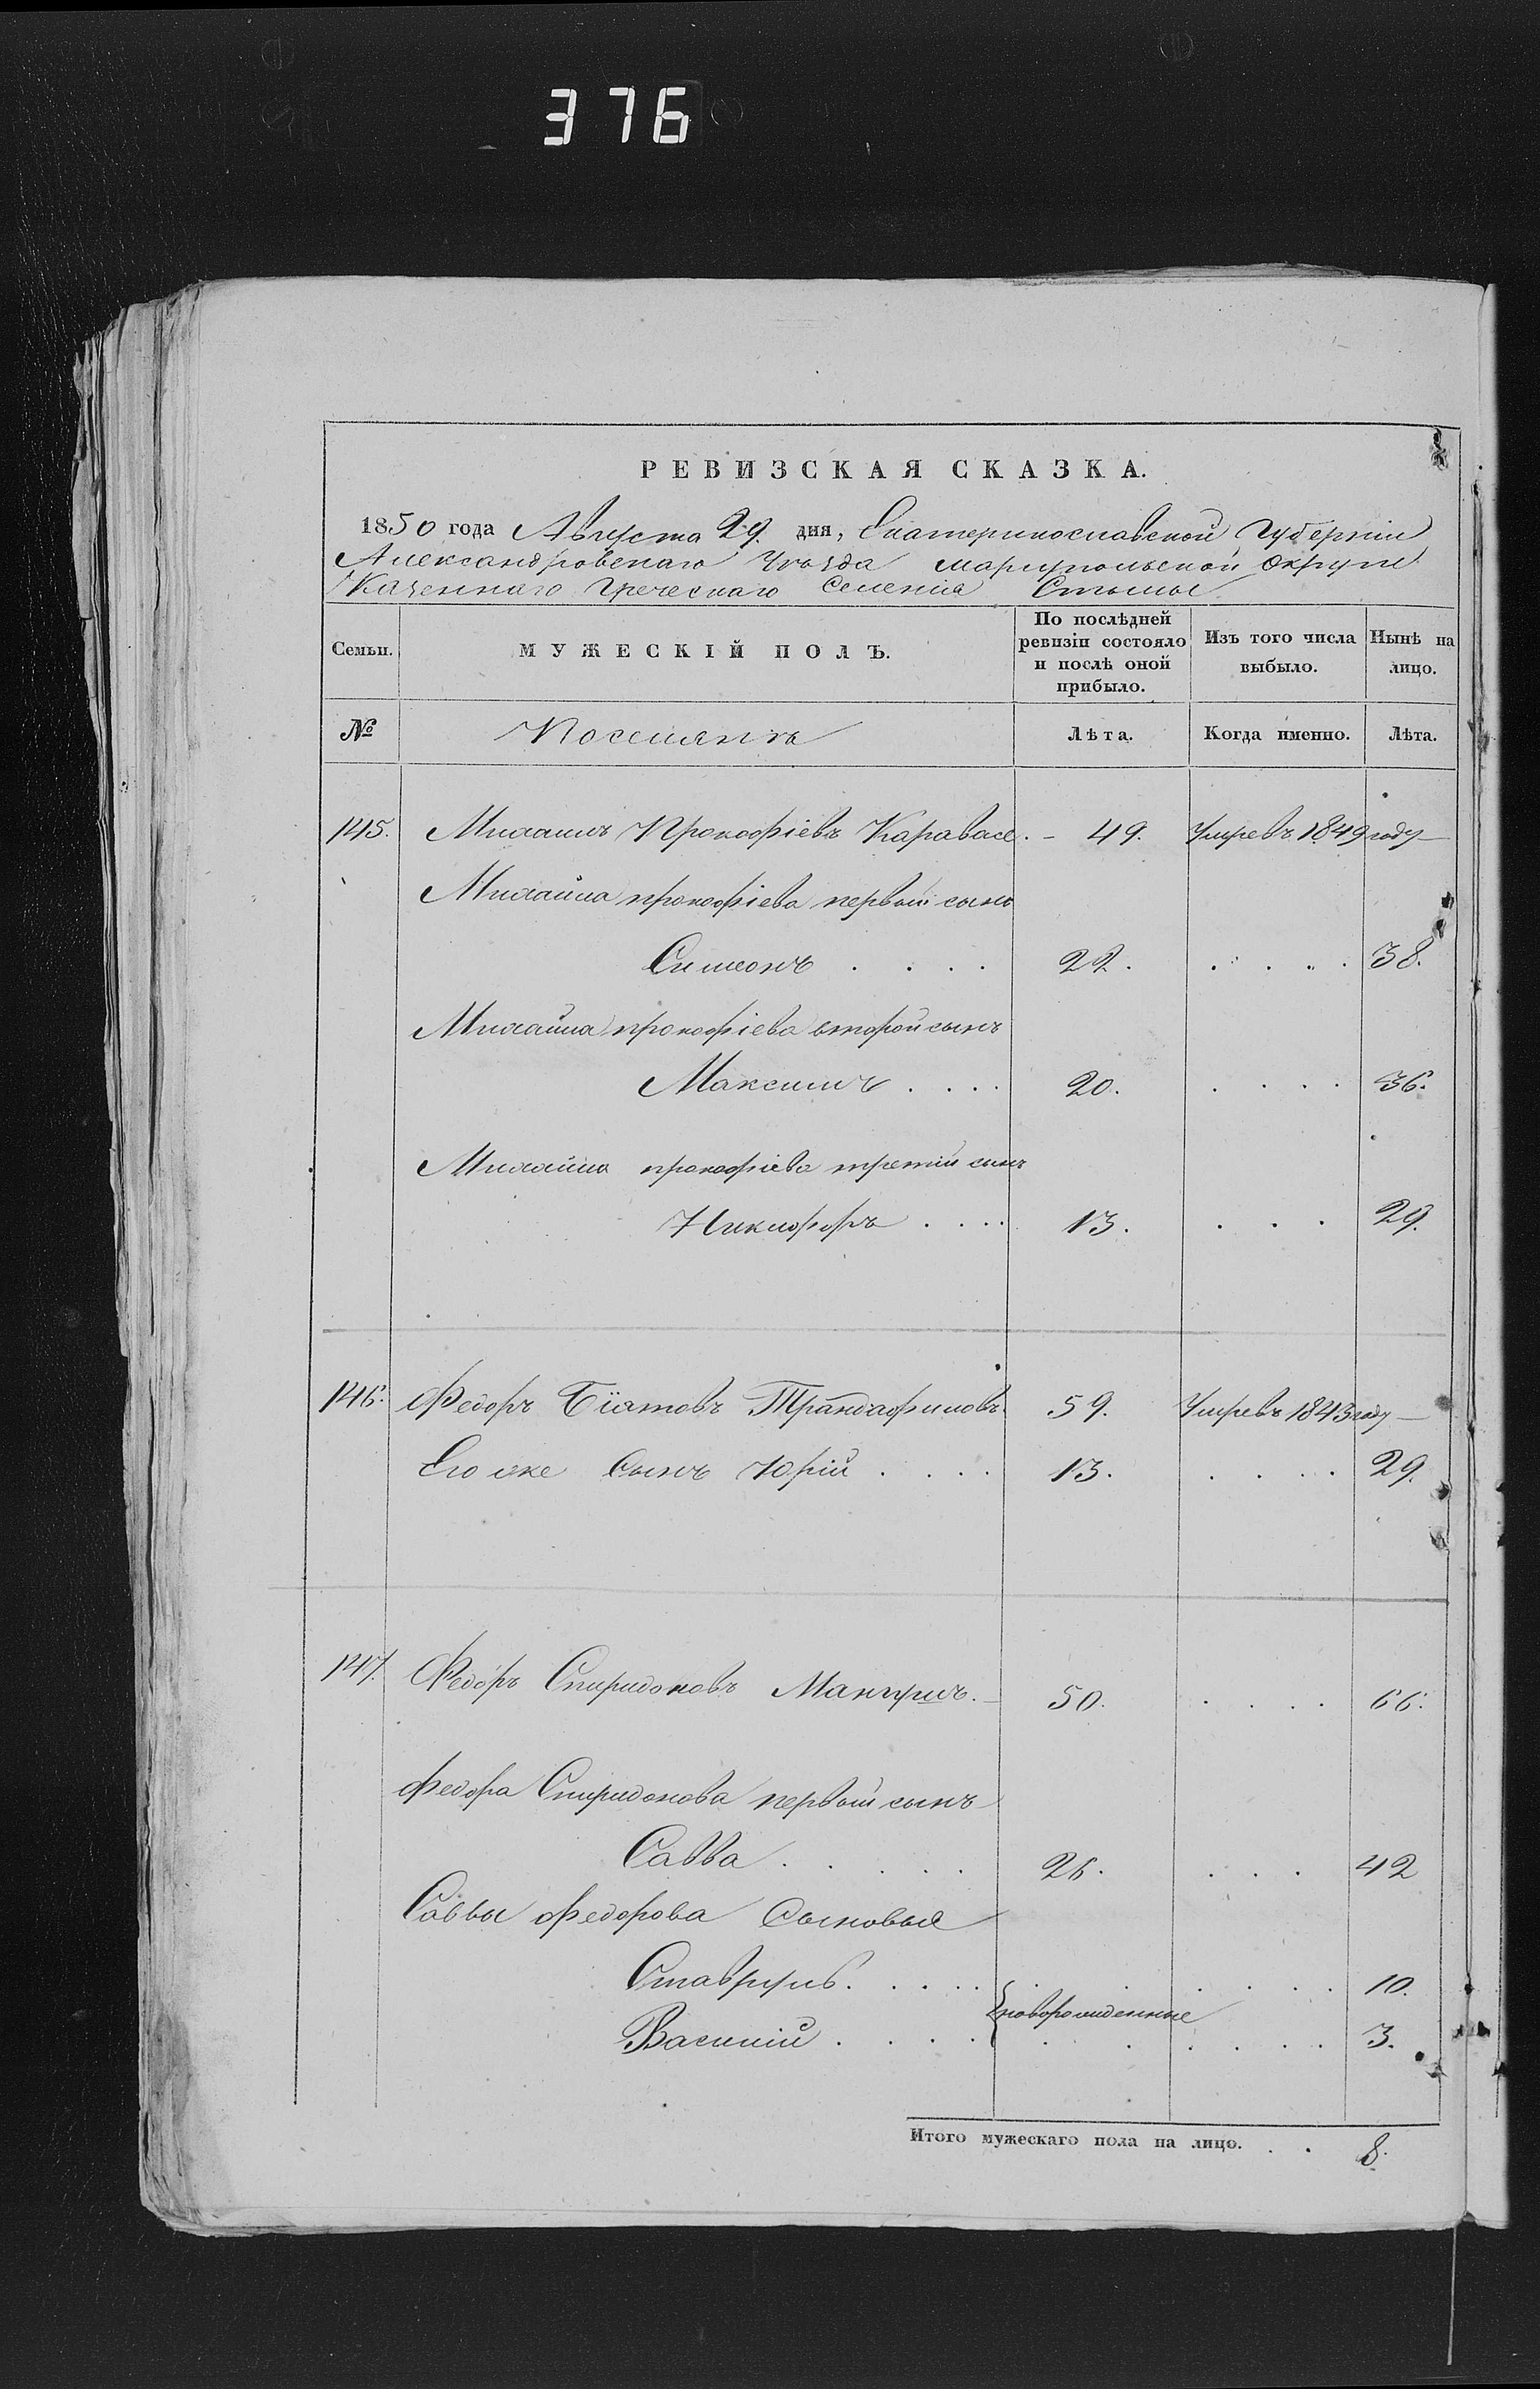 376
РЕВИЗСКАЯ СКАЗКА.
1850 года Августа 29. дня, Екатеринославской Губернiи
Александровскаго Уѣзда марiупольской округи
Казеннаго Греческаго Селенiя Стылы
Семьи. МУЖЕСКIЙ ПОЛЪ. По послѣдней ревизiи состояло и послѣ оной прибыло. Изъ того числа выбыло. Нынѣ на лицо.
№ Поселянъ Лѣта. Когда именно. Лѣта.
145. Михаилъ Прокофiевъ Каравасе. - 49. Умревъ 1849 году —
Михайла прокофiева первый сынъ
Симеонъ . . . . 22. . . . . 38.
Михайла прокофiева второй сынъ
Максимъ . . . . 20. . . . . 36.
Михайла прокофiева третiй сынъ
Никифоръ . . . . 13. . . . 29.
146. Федоръ Трандафиловъ 59. Умревъ 1843 году —
Его же Сынъ Юрiй . . . . 13. . . . . 29.
147. Федоръ Спиридоновъ 50. . . . . 66.
Федора Спиридонова первый сынъ
Савва . . . . . 26. . . . 42
Саввы Федорова Сыновья
Ставруль . . . . . 10.
новорожденные
Василiй . . . . 3.
Итого мужескаго пола на лицо. . . 8.